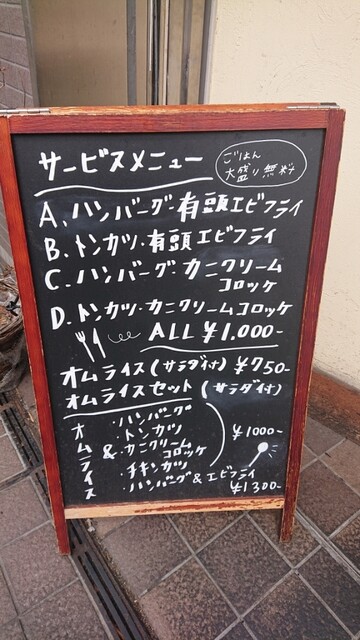 サービスメニュー
ごはん
大盛り無料
A、ハンバーグ・有頭エビフライ
B、トンカツ・有頭エビフライ
C、ハンバーグ・カニクリーム
コロッケ
D、トンカツ・カニクリームコロッケ
ALL ¥1,000-
オムライス(サラダ付)¥750-
オムライスセット(サラダ付)
オムライス
&
・ハンバーグ
・トンカツ
・カニクリーム
コロッケ
・チキンカツ
¥1000-
・ハンバーグ&エビフライ
¥1300-